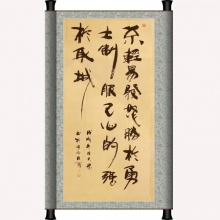 不輕易發怒勝於勇
士制服己心的强
於取城